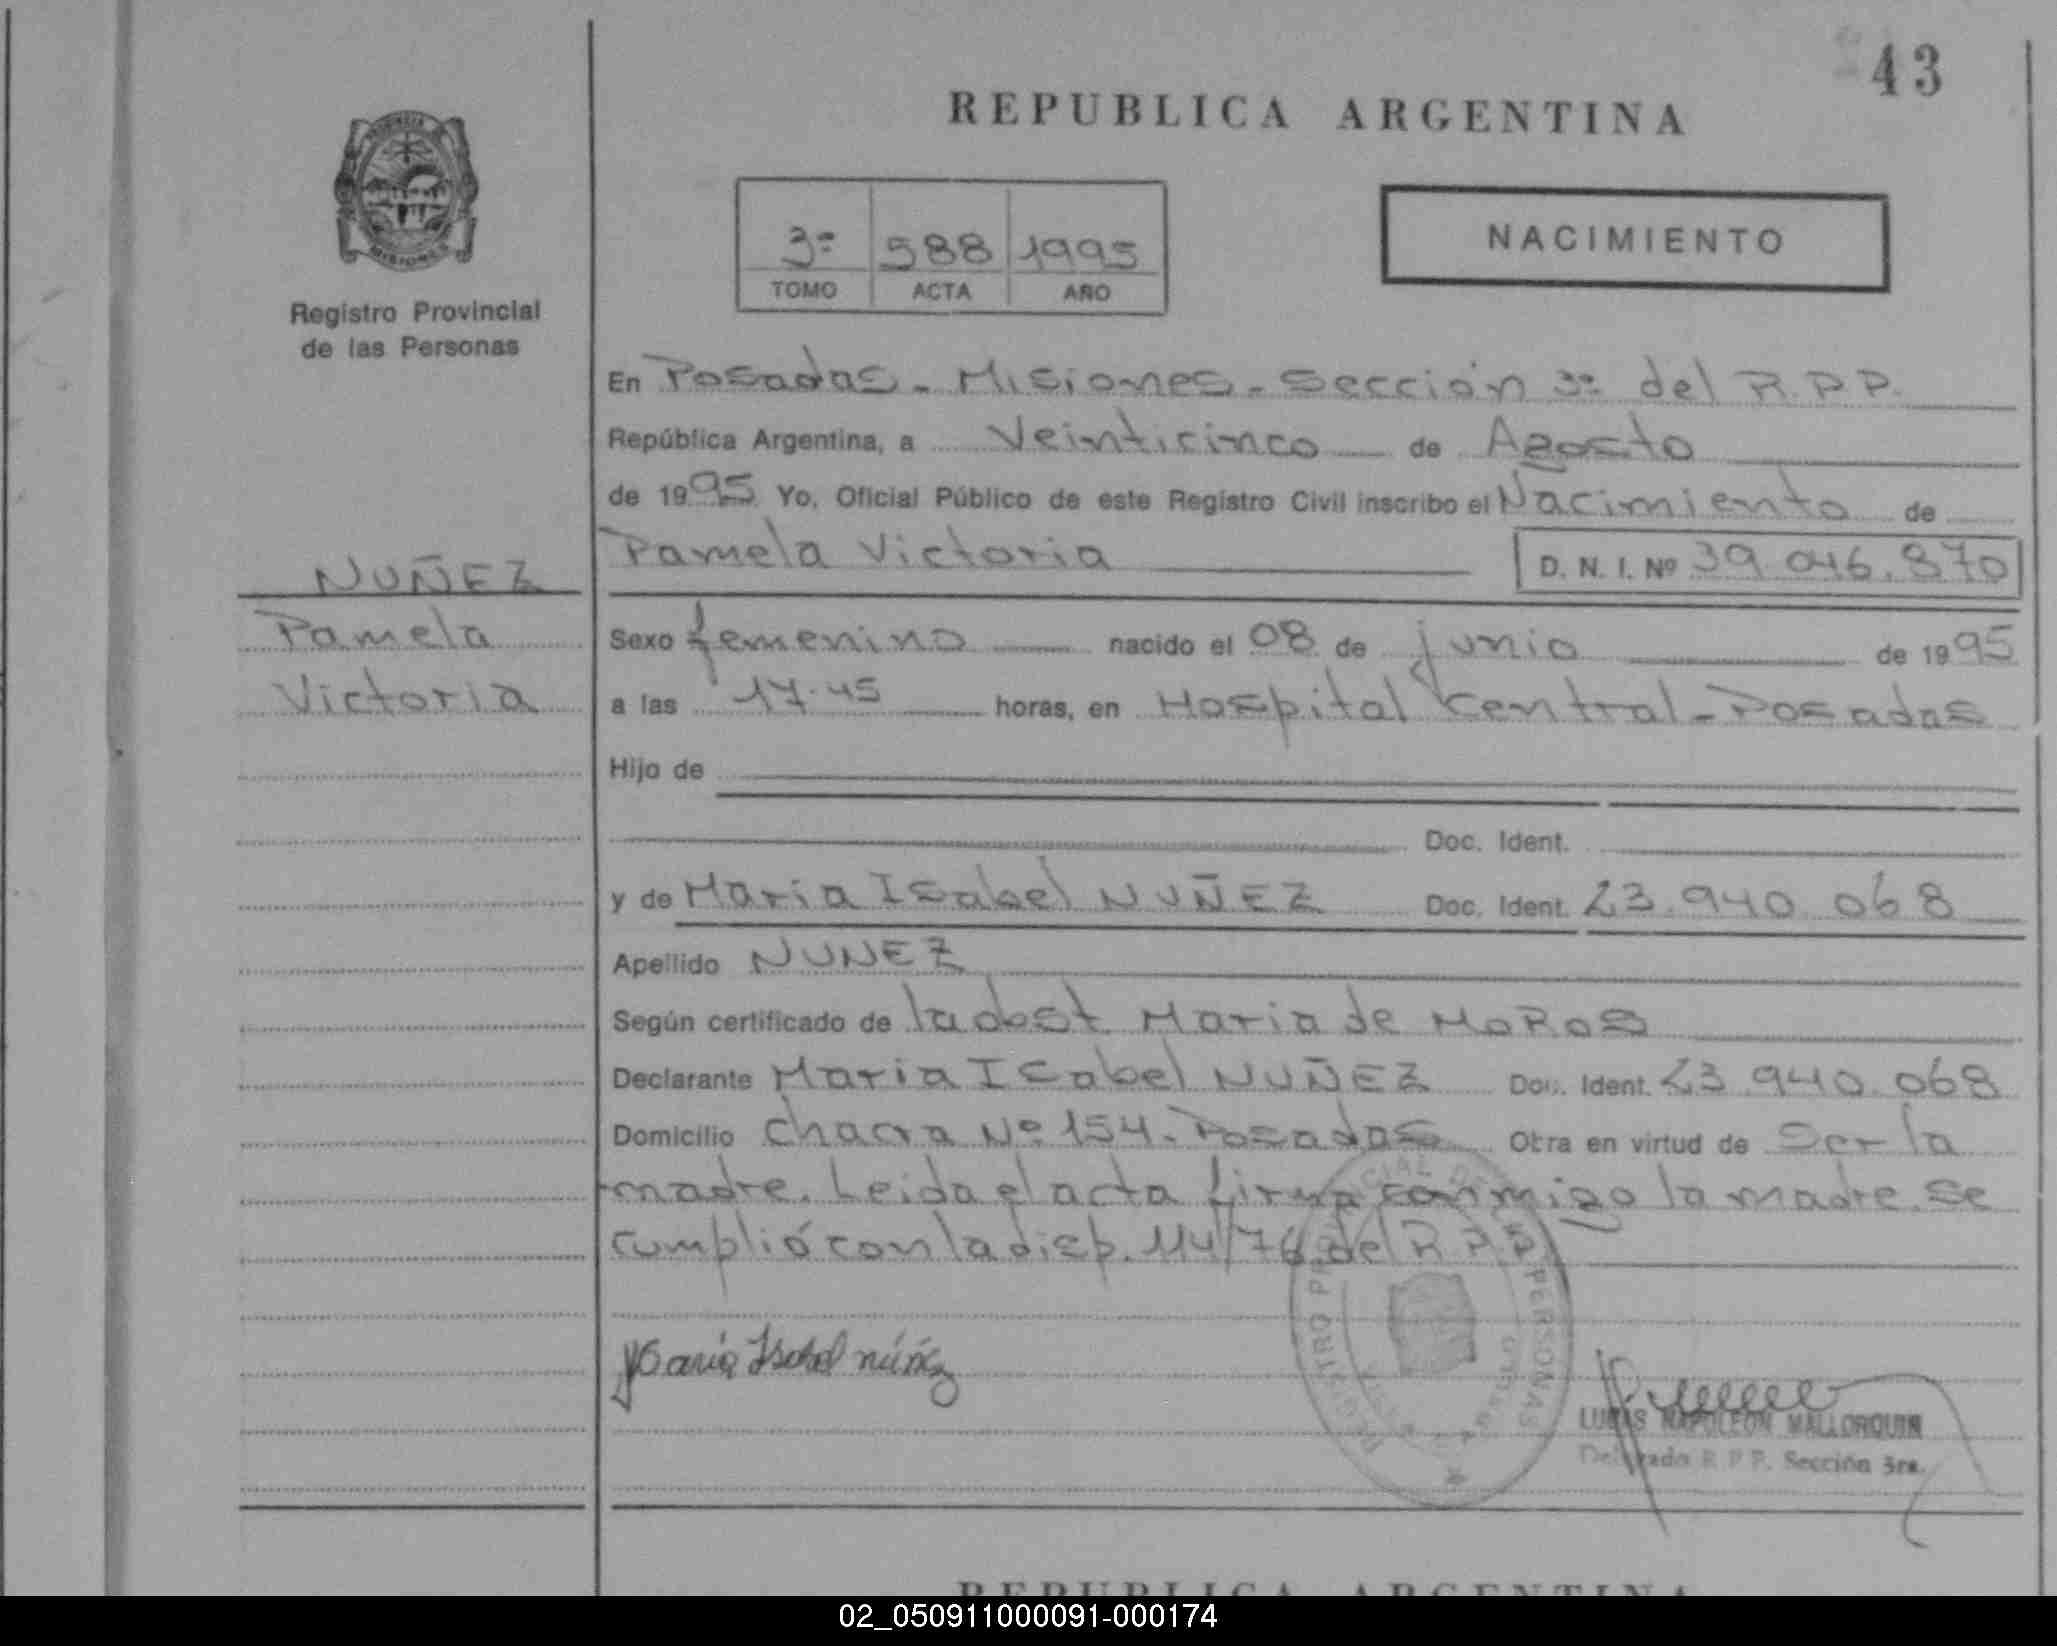 43
REPUBLICA ARGENTINA
NACIMIENTO
3º 588 1995
TOMO ACTA AÑO
Registro Provincial
de las Personas
En Posadas - Misiones - Sección 3º del R.P.P.
República Argentina, a Veinticinco de Agosto
de 1995 Yo, Oficial Público de este Registro Civil inscribo el Nacimiento de
Pamela Victoria D. N. I. Nº 39.046.870
NUÑEZ
Pamela
Victoria
Sexo femenino nacido el 08 de junio de 1995
a las 17.45 horas, en Hospital Central - Posadas
Hijo de
Doc. Ident.
y de Maria Isabel NUÑEZ Doc. Ident. 23.940.068
Apellido NUNEZ
Según certificado de la obst. Maria de MOROS
Declarante Maria Isabel NUÑEZ Doc. Ident. 23.940.068
Domicilio Chacra Nº 154. Posadas Otra en virtud de Ser la
madre. Leida el acta firma conmigo la madre. Se
cumplió con la disp. 114/76 del R.P.P.
Maria Isabel núñez
REGISTRO PROVINCIAL DE PERSONAS
LUCAS NAPOLEON MALLORQUIN
Delegado R.P.P. Sección 3ra.
REPUBLICA ARGENTINA
02_050911000091-000174